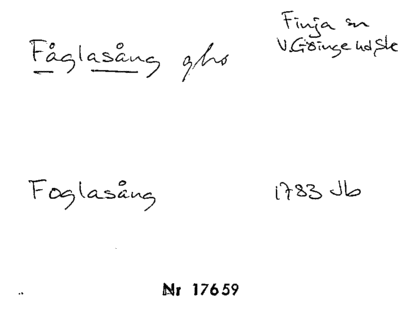 Finja sn
Fåglasång gho V.Göinge hd, Sk
Foglasång 1783 Jb
Nr 17659